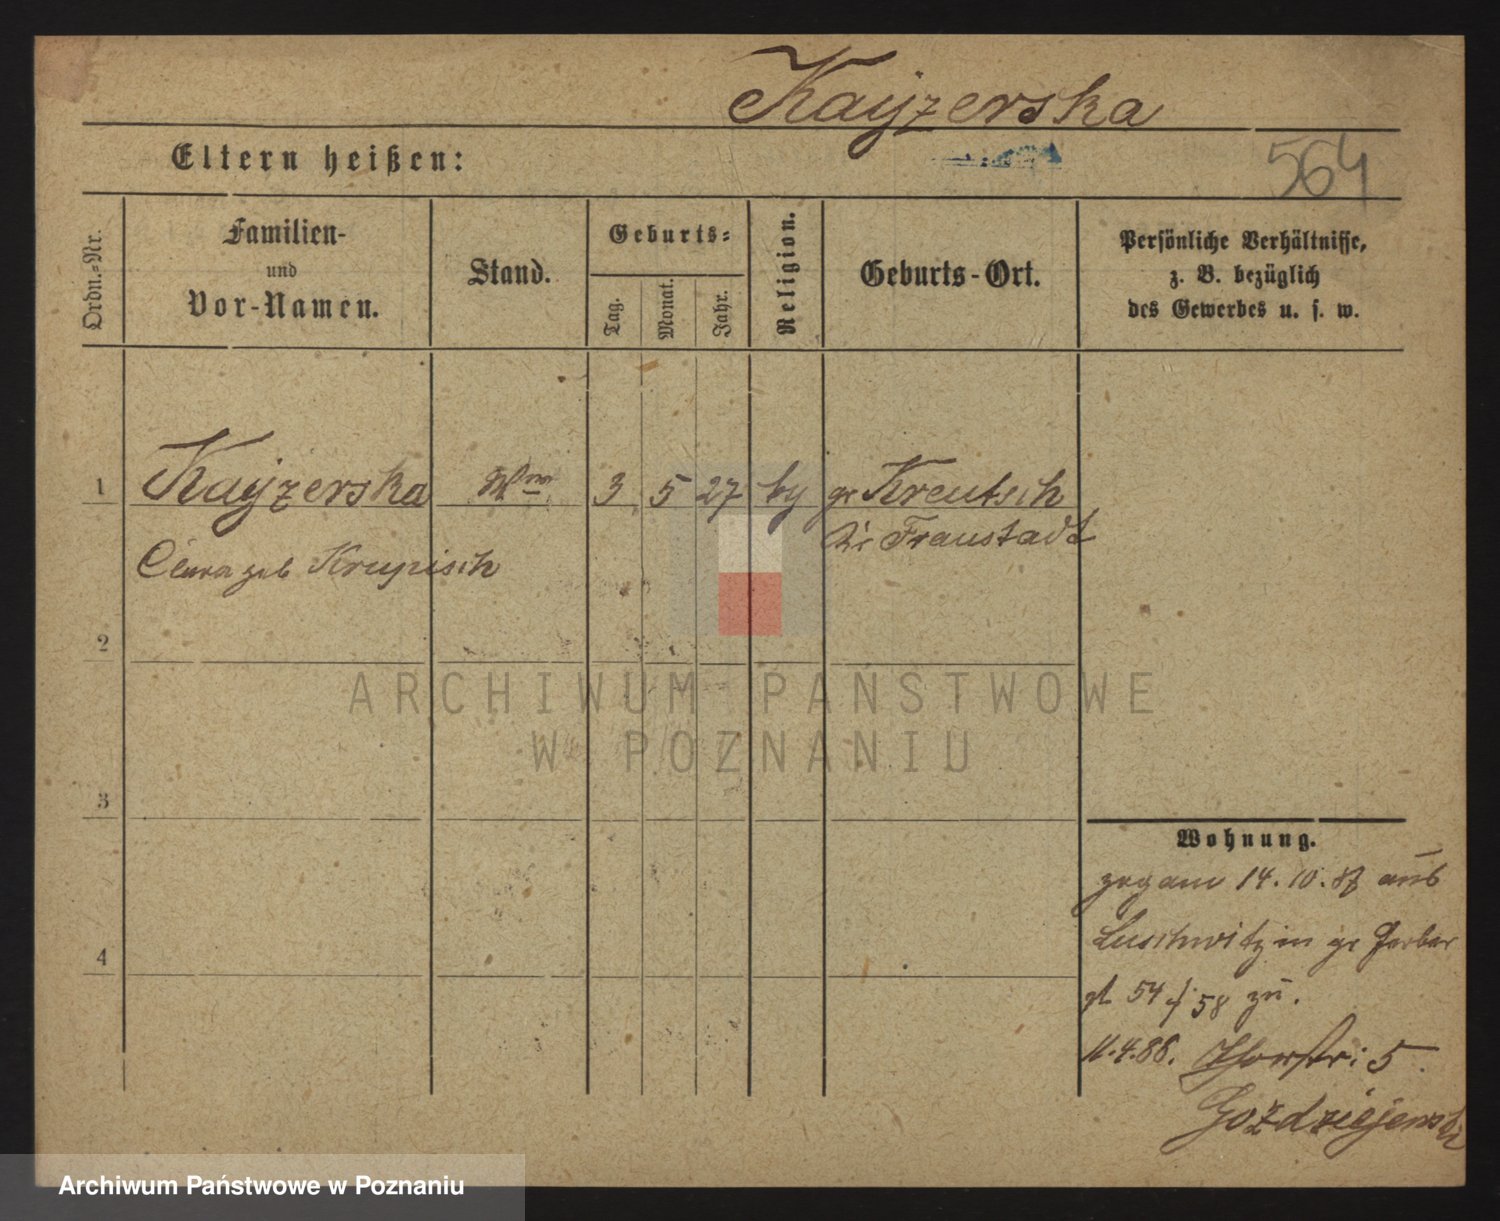 Kayzerska
Eltern heißen:
564
Ordn.-Nr.
Familien-
und
Vor-Namen.
Stand.
Geburts-
Tag.
Monat.
Jahr.
Religion.
Geburts-Ort.
Persönliche Verhältnisse,
z. B. bezüglich
des Gewerbes u. s. w.
1 Kayzerska Ww 3 5 27 kg gr Kreutsch
Kr Fraustadt
geb Krupisch
2
ARCHIWUM PAŃSTWOWE
W POZNANIU
3
Wohnung.
14.10.87 aus
Luschwitz in gr Gerber
54 / 58 zu.
4
11.4.88. Thorstr: 5
Goździejewski
Archiwum Państwowe w Poznaniu